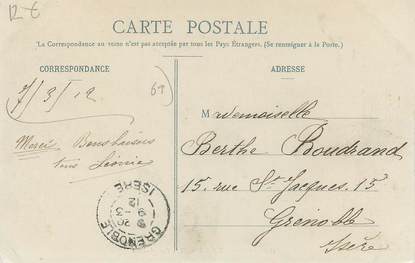 12-€
CARTE POSTALE
La Correspondance au verso n'est pas acceptée par tous les Pays Étrangers. (Se renseigner à la Poste).
CORRESPONDANCE
ADRESSE
7/3/12
69
Mademoiselle
Merci Bons baisers
tous Léonie
Berthe Boudrand
15. rue St Jacques. 15
Grenoble
Isère
GRENOBLE
ISÈRE
9-3
12